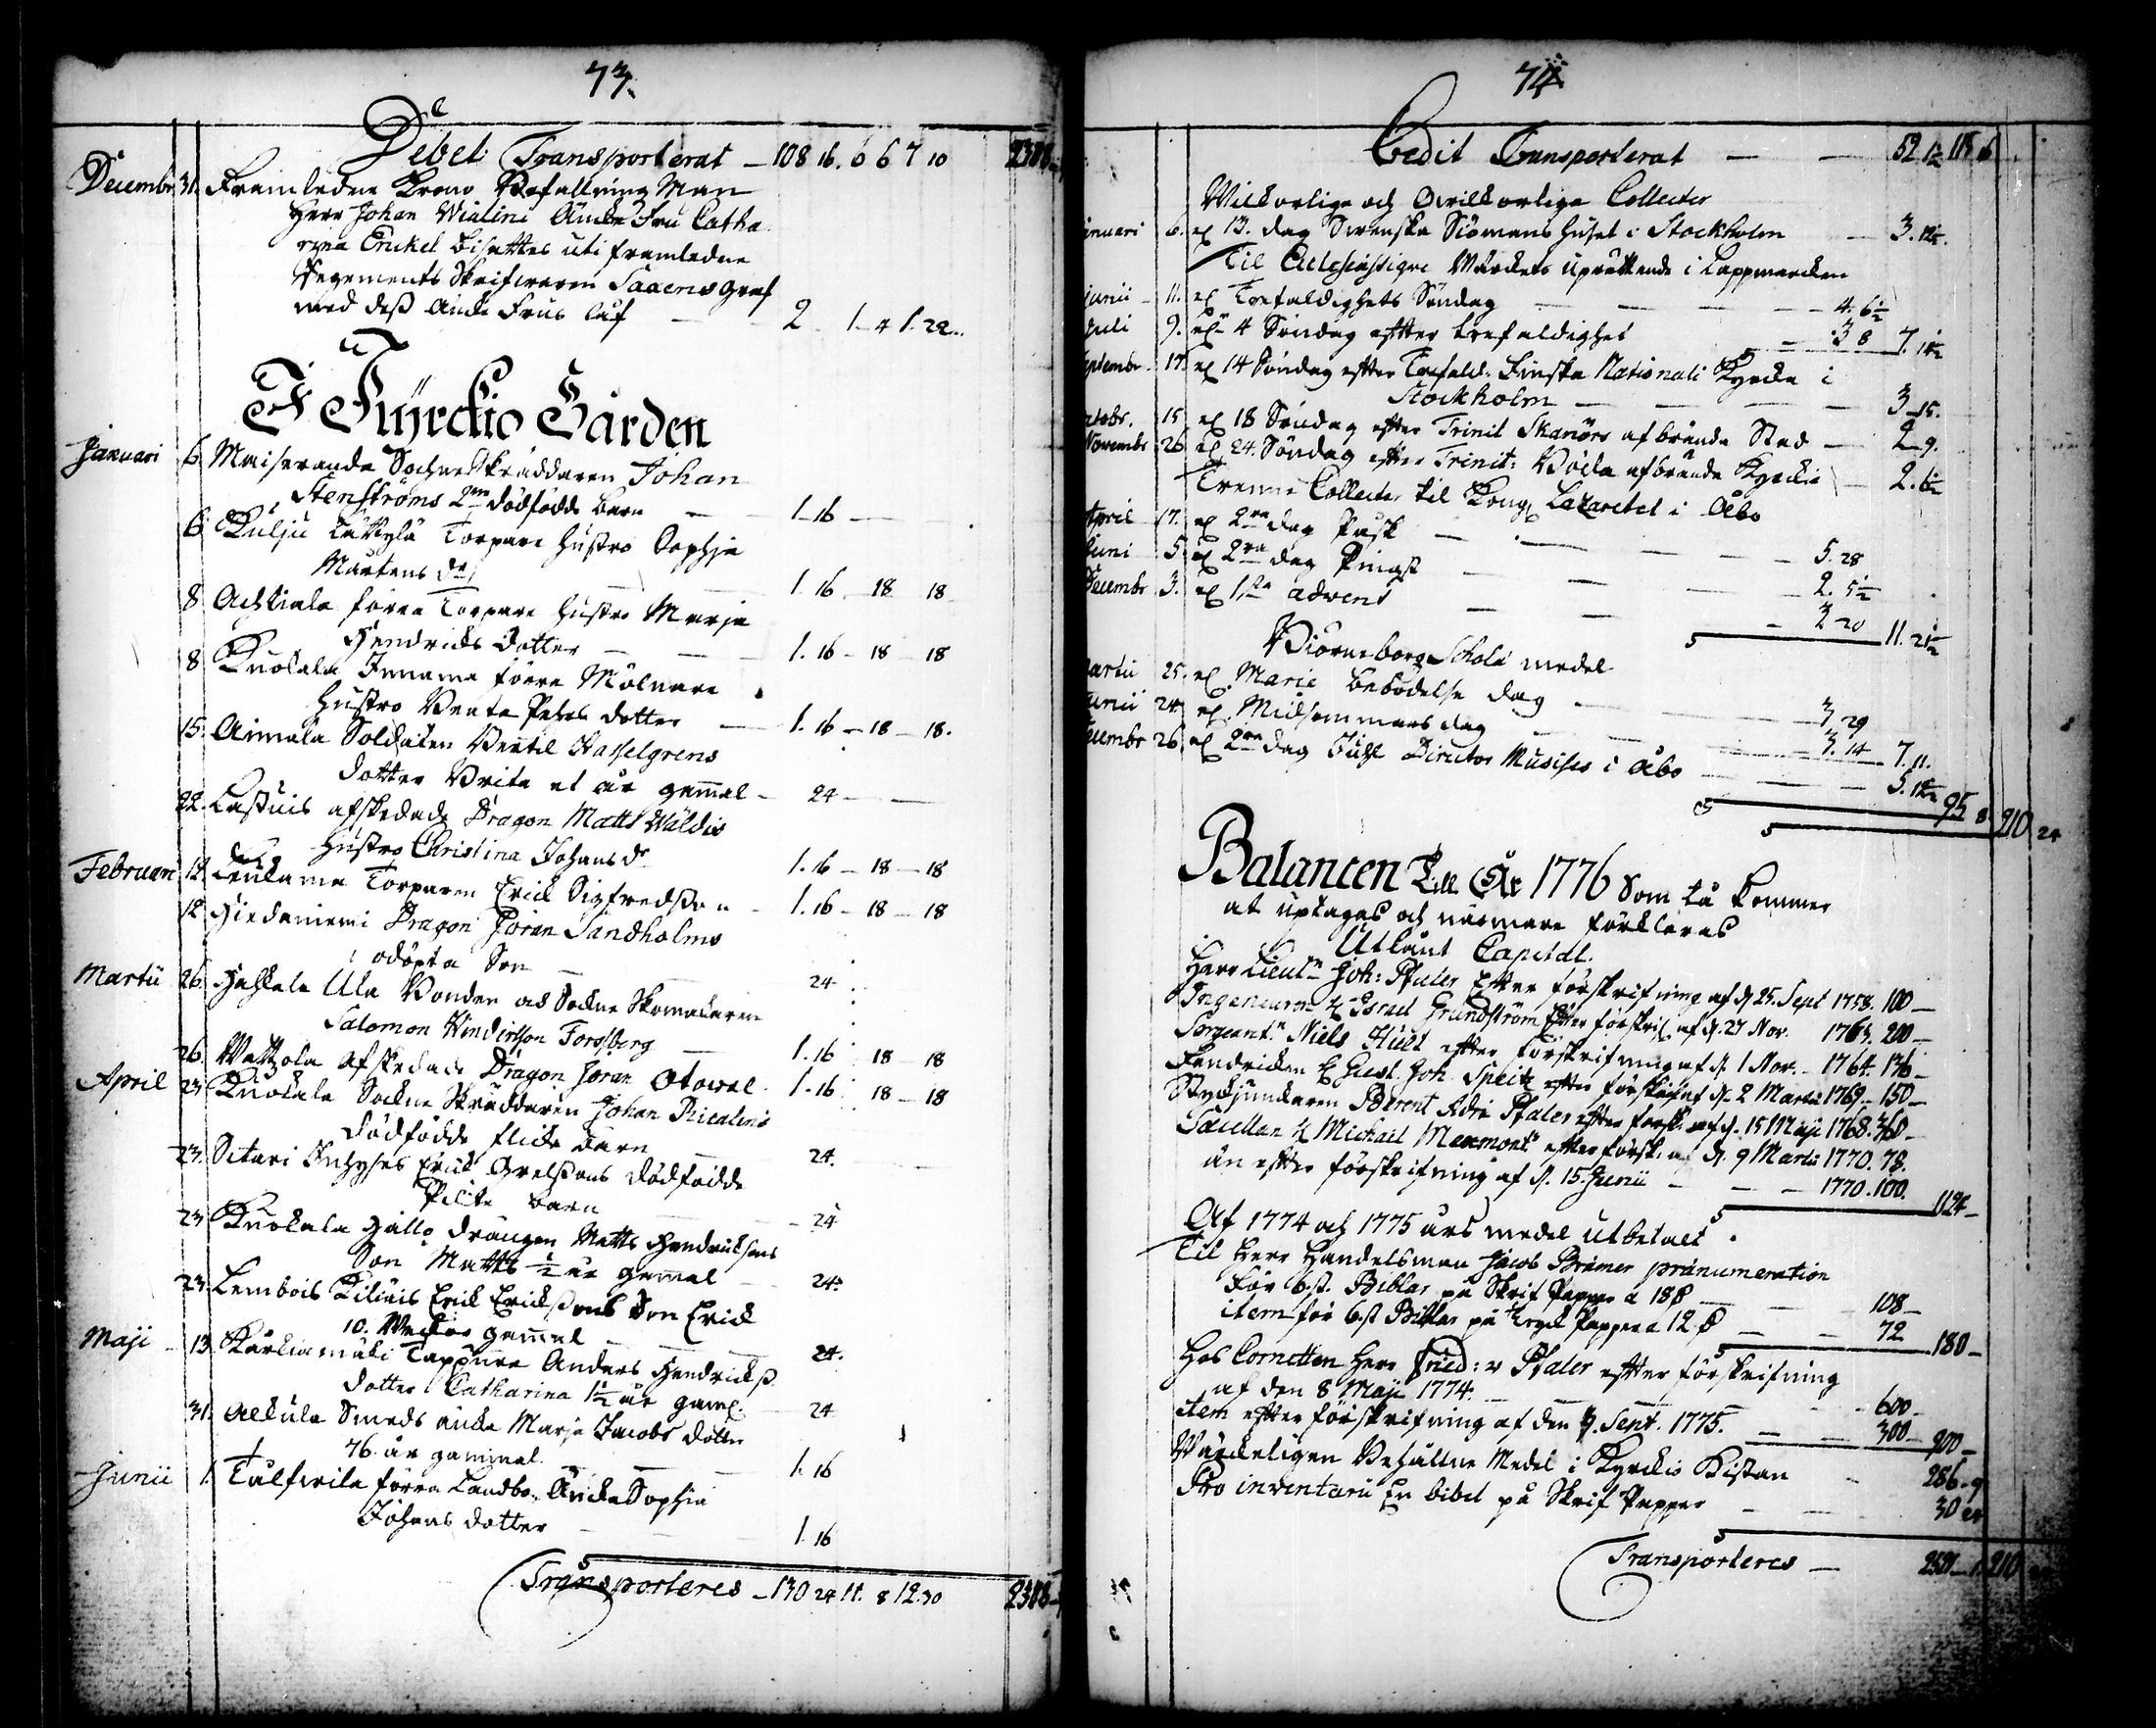 73.
Debet Transporterat — 108 16. 6 6 7 10 2308
Decembr. 31. Framledne Krono Befallning Man
Herr Johan Wialini Äncka Fru Catha
rina Enckel bisattes uti framledne
Regements Skrifwaren Saxens graf
med dess Ancke Frus luf — 2 1 4 1. 22..
I Kyrckio Gården
Januari 6. Maiserande Sochne Skräddaren Johan
Stenströms 2ne dödfödde barn — 1 16 —
6. Kulju Torpare hustro Sophja
Mårtens dr. 1. 16. 18 18
8 Achtiala förra Torpare hustro Marja
Hendrichs dotter — 1. 16 — 18 — 18
8 Kuokala Innama förra Mölnare
hustro Beata Pehrs dotter — 1. 16 — 18 — 18.
15. Aimala Soldaten Bertil Hasselgrens
dotter Brita et år gammal — 24 —
22. Lastuis afskedade Dragon Matts Wäldis
hustro Christina Johans dr. 1. 16 — 18 — 18
Februari 12. Torparen Erick Sigfredsson — 1. 16 — 18 — 18
12 Hiedaniemi Dragon Jöran Sandholms
odöpta Son 24
Martii 26. Ula Bonden och Sockne Skomakaren
Salomon Hindersson Forssberg 1. 16 18 18
26. Wattzola Afskedade Dragon Jöran Otowal 1. 16 18 — 18
April 23 Kuokala Sockne Skräddaren Johan
dödfödde flicke barn 24.
23. Sitari Inhyses Erick Grelssons dödfödde
Picke barn — 24
23 Kuokala Hållo drängen Matts Hendricksons
Son Matts ½ år gammal — 24.
23. Lembois Kiliais Erick Ericksons Son Erick
10. Weckor gammal 24.
Maji 13 Kärkiamäki Tappura Anders Hendricks
dotter Catharina 1½ år gaml. 24
31. Alkula Smeds äncka Marja Jacobs dotter
76. år gammal. 1. 16
Junii 1. Tulfwila förra Landbo. Äncka Sophia
Johans dotter 1. 16
Transporteres — 130 24 11. 8 12. 30 2308
74
Credit Transporterat — — 52 1½ 115 6
Wilkorlige och Owilkorlige Collecter
anuari 6. 13. dag Swenska Siömans huset i Stockholm — 3. 12½.
Til Eclesiastique Wärckets uprättande i Lappmarcken
junii 11. Trefaldighets Söndag — 4. 6½
Juli 9. 4 Söndag efter trefaldighet 3 8 7. 14½
eptembr. 17. 14 Söndag efter Trefald: Finska Nationali Kyrcka i
Stockholm — 3 15.
ctobr. 15. 18 Söndag efter Trinit Skanörs afbrända Stad — 2 9.
Novembr 26. 24. Söndag efter Trinit: afbrända Kyrckia — 2. 6½
Trenne Collecter til Kong. Lazarettet i Åbo
April 17. 2ra dag Påsk — 5. 28
Juni 5 2ra dag Pingst — 2. 5½
Decembr 3. 1sta advent — 3 20 11. 21½
Biörneborgs Schola medel
artii 25. Marie bebodelse dag — 3 29
Junii 24. Midsommars dag — 3. 14 7. 11.
ecembr 26. 2ra dag Juhl Director Musises i Åbo — 5. 12½
95 8 210 24
Balancen Till År 1776 Som tå kommer
at uptagas och närmare förklaras
Utlånt Capital.
Herr Lieutn Joh: Ståler Efter förskrifning af d 25. Sept 1758. 100 —
Ingenieuren H Israel Grundström Efter förskrif af d. 27 Nov. 1763. 200 —
Sergeantn Niels Hult efter förskrifning af d. 1 Nov. — 1764. 136 —
Fendricken H Gust. Joh. Speitz efter förskrif af d. 2 Martii 1769 — 150 —
Styckjunckaren Berent Adri Ståler efter forsk. af d. 15 Maji 1768. 360 —
Sacellan H Michail Maxmont efter försk. af d. 9 Martii 1770. 78.
än efter förskrifning af d. 15. Junii — 1770. 100. 1124 —
Af 1774 och 1775 års medel utbetalt.
Til Herr Handelsman Jacob Bremer pränumeration
För 6. st. Biblar på Skrif Papper a 18 108 —
item för 6. st Biblar på Tryck Papper a 12 — 72 180 —
Hos Cornetten Herr Fried: v Ståler efter förskrifning
af den 8 Maji 1774. 600
item efter förskrifning af den 9. Sept. 1775. — 300 900 —
Wärckeligen Behållne Medel i Kyrckio Kistan 286. 9
Pro inventarii En bibel på Skrif Papper 30 24
Transporteres — 2521 1. 210